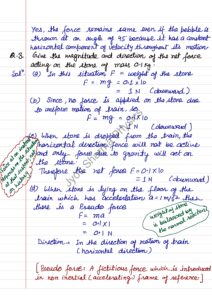 Yes, the force remains same even if the pebble is
thrown at an angle of 45° because it has a constant
horizontal component of velocity throughout its motion
Q.3. Give the magnitude and direction of the net force
acting on the stone of mass 0.1 kg.
Solⁿ (a) In this situation, F = weight of the stone
F = mg = 0.1 × 10
= 1 N (downward)
(b) Since, no force is applied on the stone due
to uniform motion of train, so
F = mg = 0.1 × 10
= 1 N (downward)
(c) When stone is dropped from the train, the
horizontal direction force will not be active
and only force due to gravity will act on
the stone
Therefore the net force F = 0.1 × 10
= 1 N (downward)
(d) When stone is lying on the floor of the
train which has acceleration, a = 1 m/s² then
there is a Pseudo force
F = ma
= 0.1 × 1
= 0.1 N
weight of stone
is balanced by
the normal reaction
Direction → In the direction of motion of train
(horizontal direction)
[Pseudo force: A fictitious force which is introduced
in non inertial (accelerating) frame of reference]